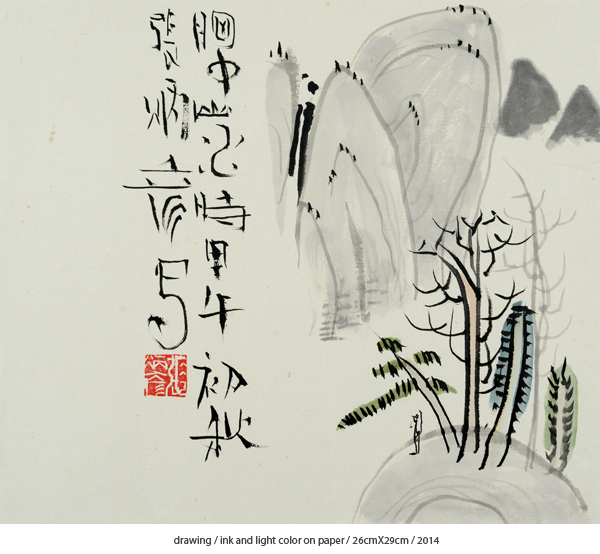 胸中山時甲午初秋
張炳彥写
drawing / ink and light color on paper / 26cmX29cm / 2014